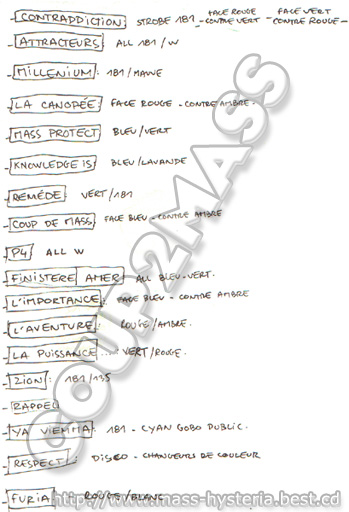 - CONTRADDICTION: STROBE 181 - FACE ROUGE - CONTRE VERT - FACE VERT - CONTRE ROUGE -
- ATTRACTEURS: ALL 181/W
- MILLENIUM: 181/MAUVE
- LA CANOPÉE: FACE ROUGE - CONTRE AMBRE.
- MASS PROTECT BLEU/VERT
- KNOWLEDGE IS BLEU/LAVANDE
- REMÉDE: VERT/181
- COUP DE MASS: FACE BLEU - CONTRE AMBRE
- P4 ALL W
- FINISTERE AMER ALL BLEU-VERT.
- L'IMPORTANCE: FACE BLEU - CONTRE AMBRE
- L'AVENTURE: ROUGE/AMBRE.
- LA PUISSANCE ..... VERT/ROUGE.
- ZION: 181/135
- RAPPEL
- YA VIEMMA: 181 - CYAN GOBO PUBLIC.
- RESPECT: DISCO - CHANGEURS DE COULEUR
- FURIA ROUGE/BLANC
COUP2MASS
http://www.mass-hysteria.best.cd